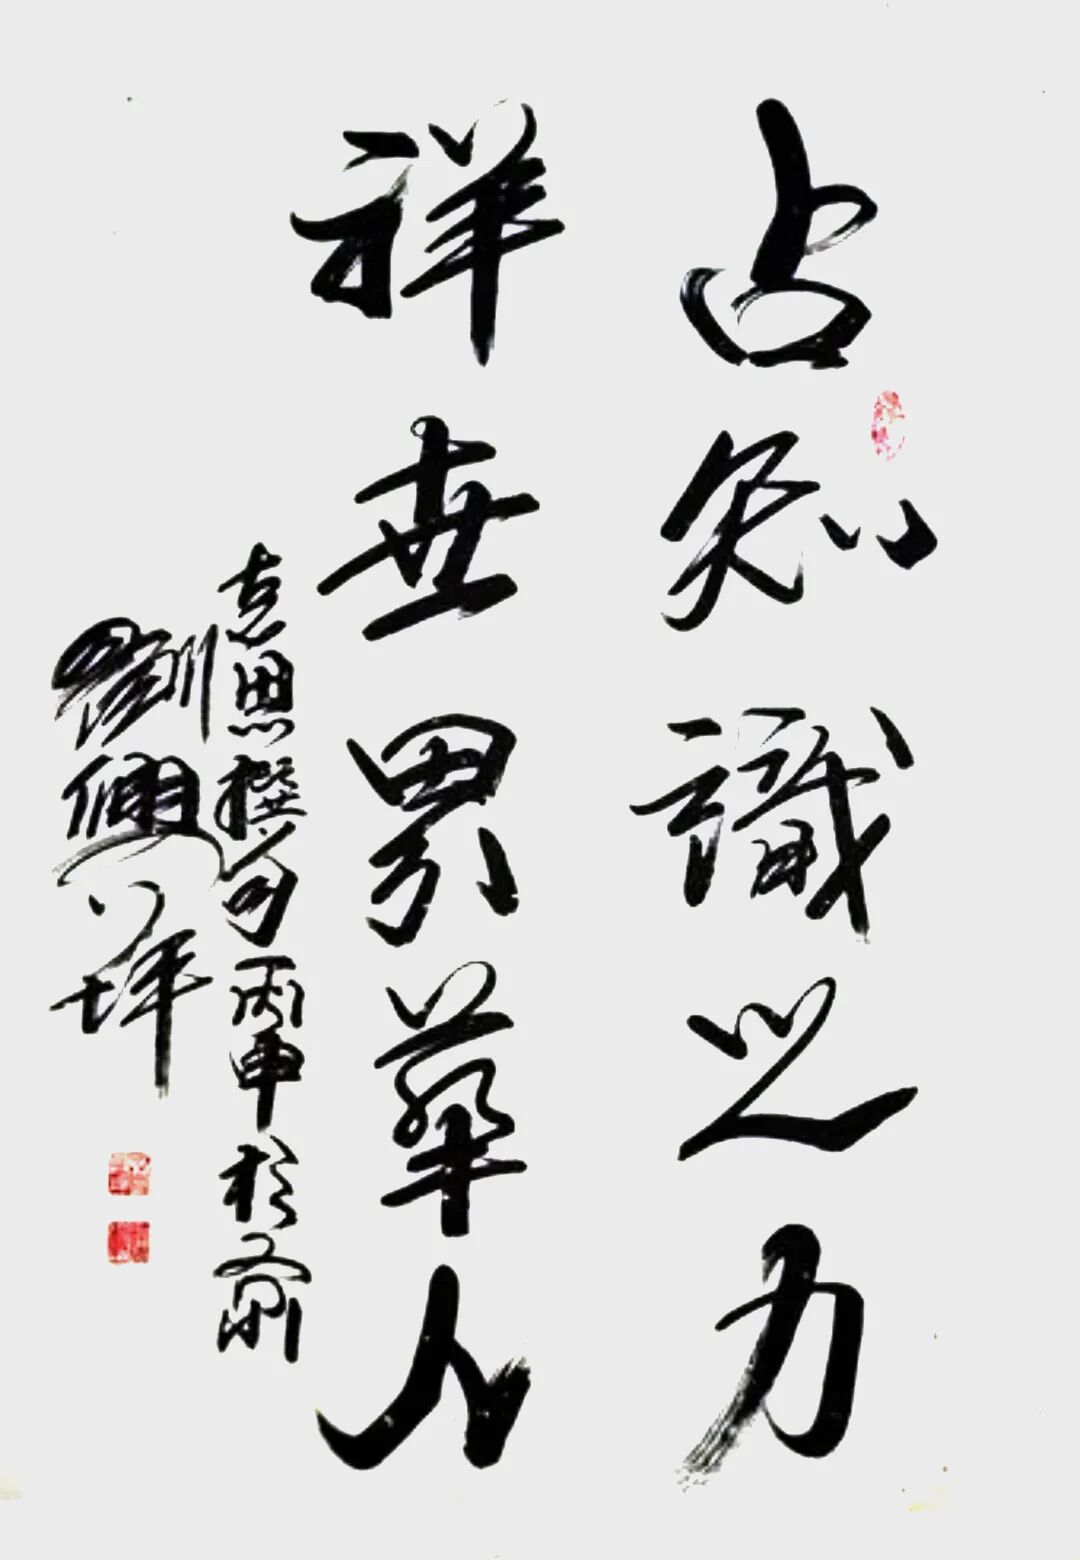 占知識之力
祥世界華人
意思撰句丙申於京
劉俊坪